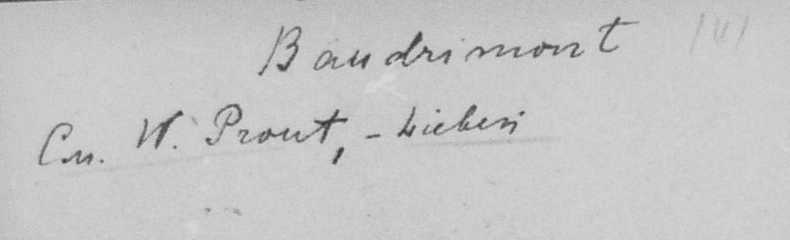 Baudrimont
См. W. Prout, - Liebig